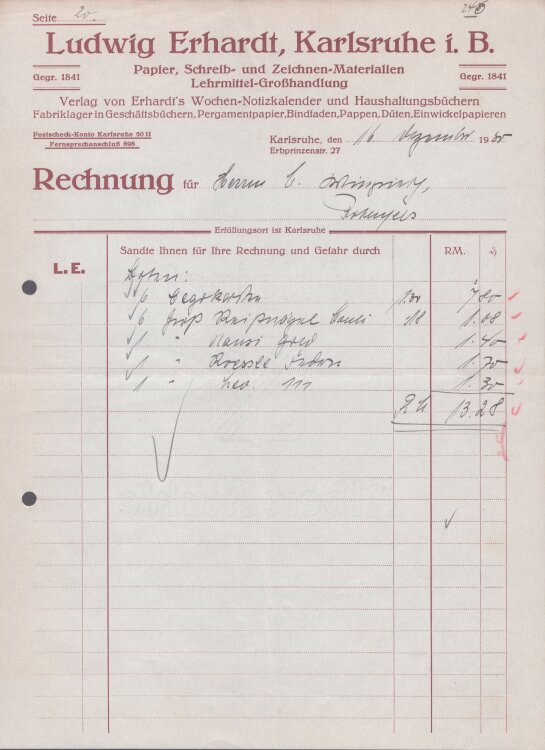 Seite 20.
Ludwig Erhardt, Karlsruhe i. B.
Gegr. 1841
Papier, Schreib- und Zeichnen-Materialien
Lehrmittel-Großhandlung
Gegr. 1841
Verlag von Erhardt's Wochen-Notizkalender und Haushaltungsbüchern
Fabriklager in Geschäftsbüchern, Pergamentpapier, Bindfaden, Pappen, Düten, Einwickelpapieren
Postscheck-Konto Karlsruhe 5011
Fernsprechanschluß 898
Karlsruhe, den 16. Dezember 19
Erbprinzenstr. 27
Rechnung für Herrn
Erfüllungsort ist Karlsruhe
Sandte Ihnen für Ihre Rechnung und Gefahr durch RM. ₰
L. E.
Boten:
6 7.80
6 Groß Reißnägel 18 1.08
1 " 1.40
1 " 1.70
1 " 111 1.30
RM 13.28